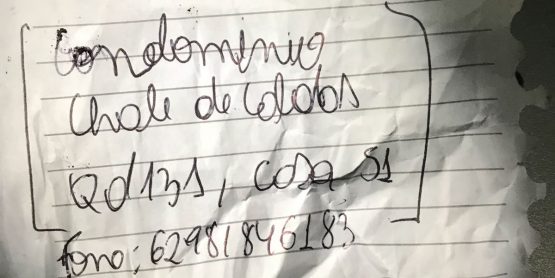 Condominio
Chale de Caldas
Qd 131, casa 51
fone: 62981846183